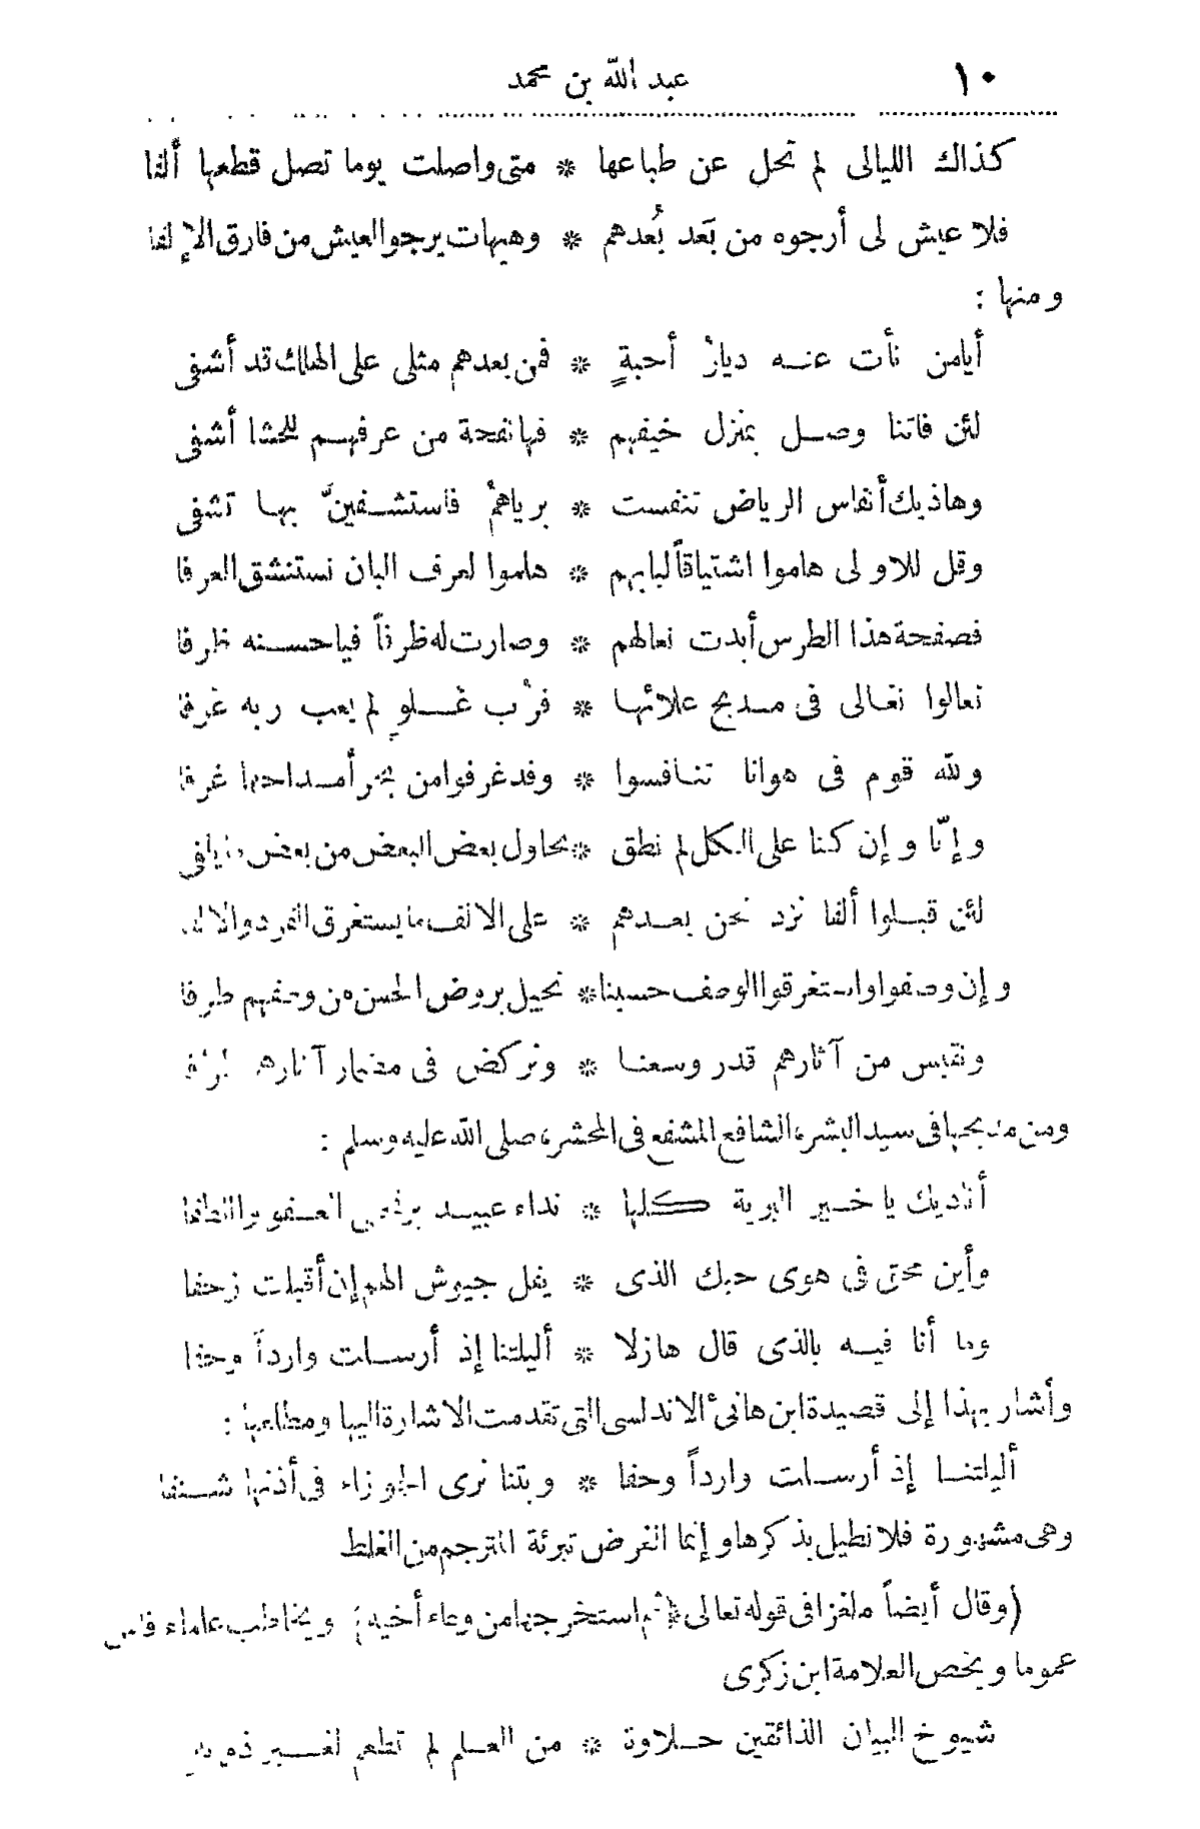 ١٠ عبد الله بن محمد
كذاك الليالى لم تحل عن طباعها * متى واصلت يوما تصل قطعها ألفا
فلا عيش لى أرجوه من بَعد بُعدهم * وهيهات يرجو العيش من فارق الإلفا
ومنها :
أيامن نأت عنه ديارُ أحبةٍ * فمن بعدهم مثلى على الهلاك قد أشفى
لئن فاتنا وصل بمنزل خيفهم * فها نفحة من عرفهم للحشا أشفى
وهاذيك أنفاس الرياض تنفست * برياهمُ فاستشفينّ بها تشفى
وقل للاولى هاموا اشتياقاً لبابهم * هلموا لعرف البان نستنشق العرفا
فصفحة هذا الطرس أبدت نعالهم * وصارت له ظرفاً فياحسنه ظرفا
تعالوا نغالى فى مديح علائها * فرُب غلوٍ لم يعب ربه غرفا
ولله قوم فى هوانا تنافسوا * وقد غرفوا من بحر أمداحها غرفا
وإنّا وإن كنا على الكل لم نطق * نحاول بعض البعض من بعض
لئن قبلوا ألفا نزد نحن بعدهم * على الالف ما يستغرق الفرد والالفا
وإن وصفوا واستغرقوا الوصف حسبنا * نحيل بروض الحسن من وصفهم طرفا
ونقبس من آثارهم قدر وسعنا * ونركض فى مضمار آثارهم
ومن مديحها فى سيد البشر، الشافع المشفع فى المحشر، صلى الله عليه وسلم :
أناديك يا خير البرية كلها * نداء عبيد يرتجى العفو واللطفا
وأين محق فى هوى حبك الذى * يفل جيوش الهم إن أقبلت زحفا
وما أنا فيه بالذى قال هازلا * أليلتنا إذ أرسلت وارداً وحفا
وأشار بهذا إلى قصيدة ابن هانئ الاندلسى التى تقدمت الاشارة اليها ومطلعها :
أليلتنا إذ أرسلت وارداً وحفا * وبتنا نرى الجوزاء فى أذنها شنفا
وهى مشهورة فلا نطيل بذكرها وإنما الغرض تبرئة المترجم من الغلط
(وقال أيضاً ملغزا فى قوله تعالى ﴿ثم استخرجها من وعاء أخيه﴾ ويخاطب علماء فاس
عموما ويخص العلامة ابن زكرى
شيوخ البيان الذائقين حلاوة * من العلم لم تطعم لغير ذويه